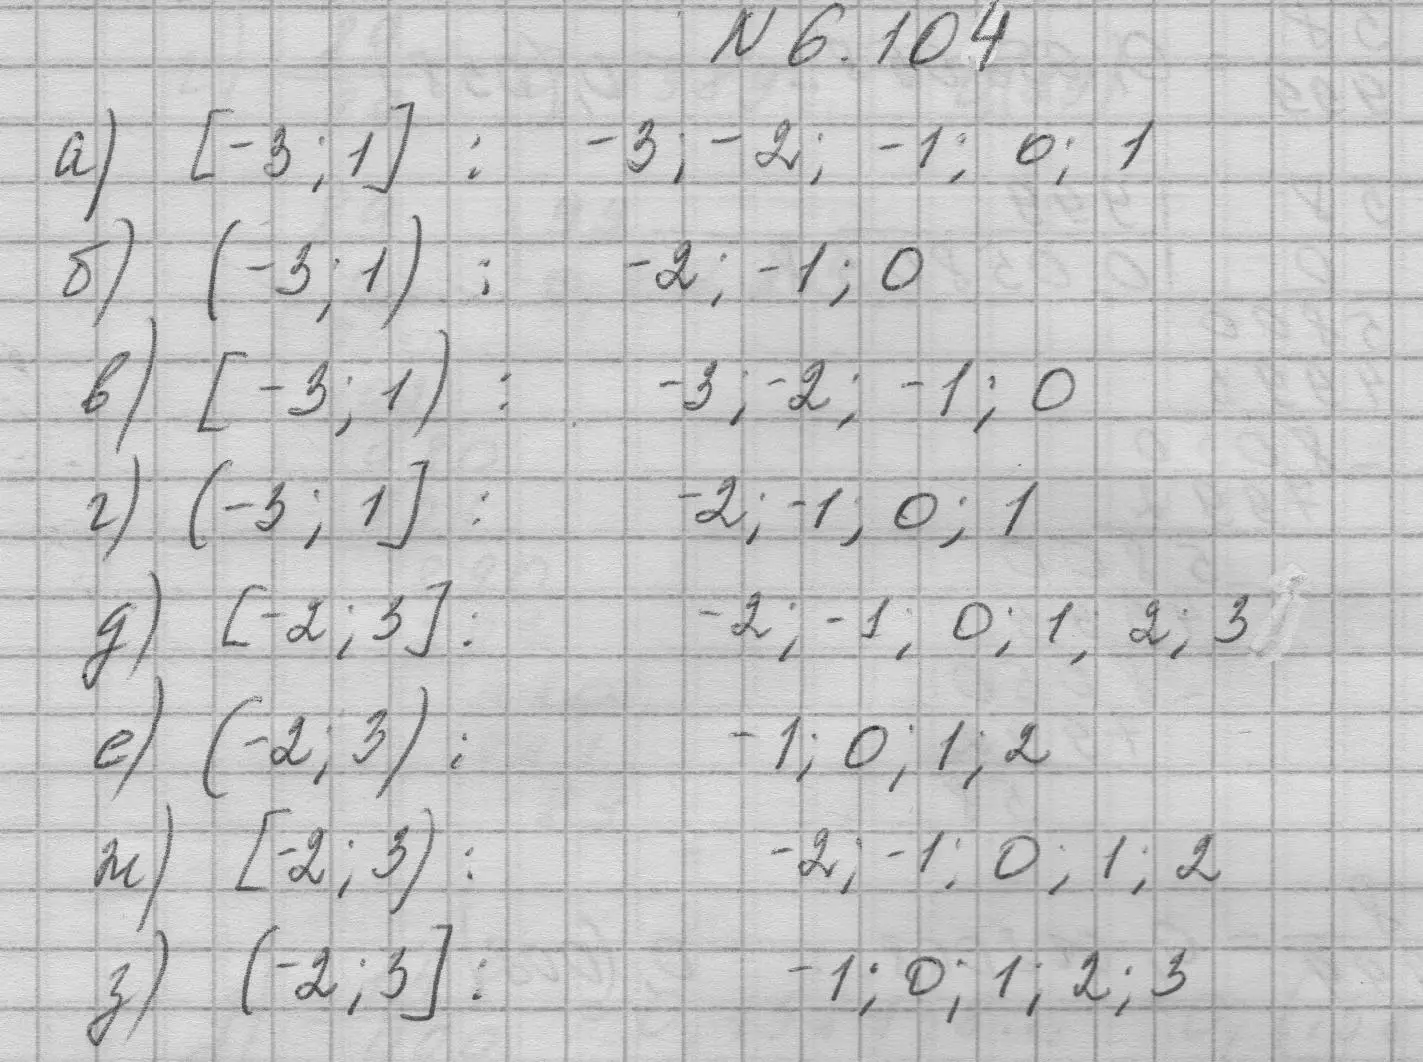 N 6.104
а) [-3; 1] : -3; -2; -1; 0; 1
б) (-3; 1) : -2; -1; 0
в) [-3; 1) : -3; -2; -1; 0
г) (-3; 1] : -2; -1; 0; 1
д) [-2; 3] : -2; -1; 0; 1; 2; 3
е) (-2; 3) : -1; 0; 1; 2
ж) [-2; 3) : -2; -1; 0; 1; 2
з) (-2; 3] : -1; 0; 1; 2; 3